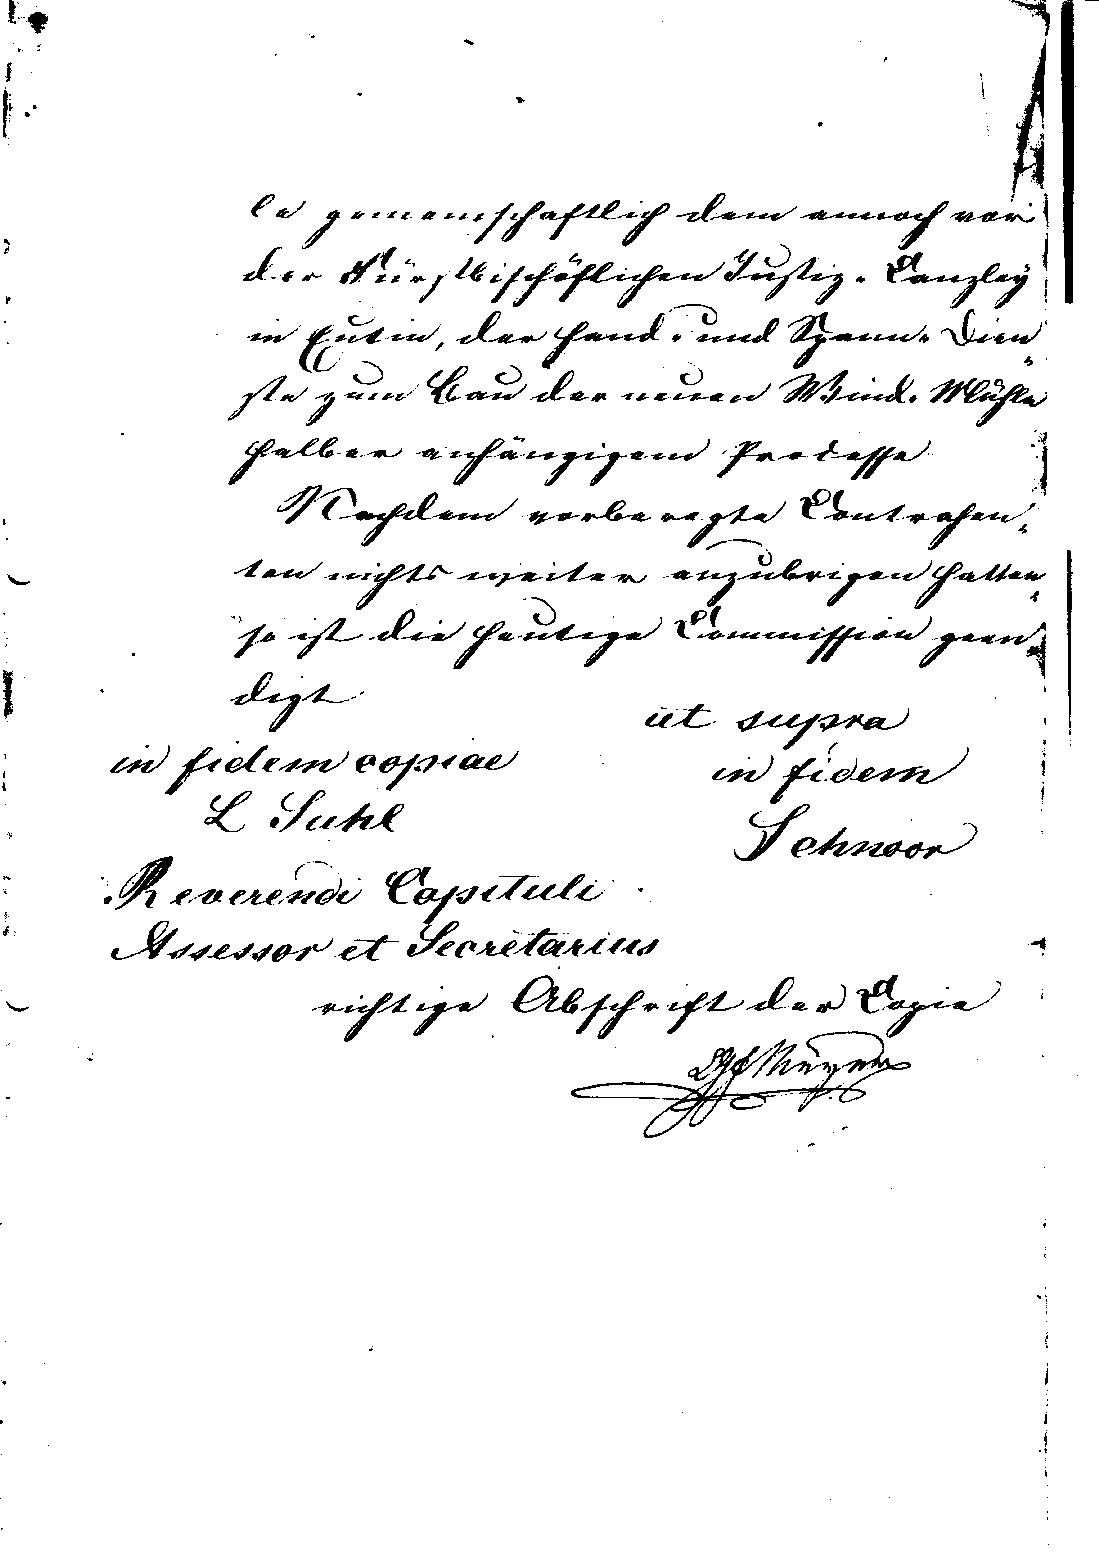 le gemeinschaftlich dem annoch vor
der Fürstbischöflichen Justiz-Canzley
in Eutin, der Hand- und Spann-Dien-
ste zum Bau der neuen Wind-Mühle
halber anhängigem Processe
Nachdem vorberegte Contrahen-
ten nichts weiter anzubrigen hatten
so ist die heutige Commission geen-
digt
ut supra
in fidem
Schnoor
in fidem copiae
L Suhl
Reverendi Capituli
Assessor et Secretarius
richtige Abschrift der Copie
Meyer